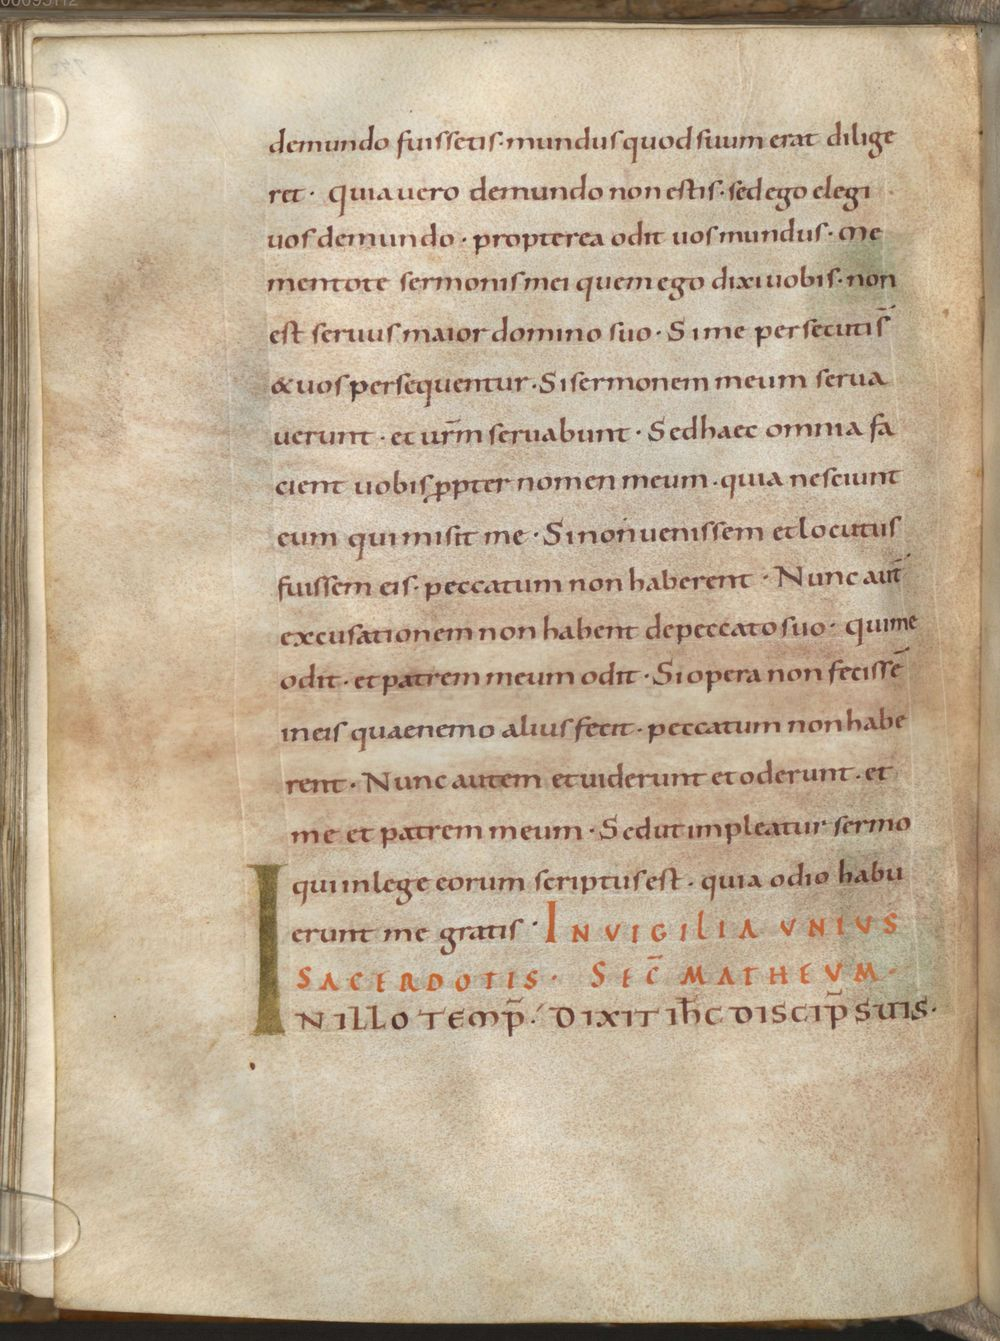 demundo fuissetis· mundus quod suum erat dilige
ret· quia uero demundo non estis· sed ego elegi
uos demundo· propterea odit uos mundus· Me
mentote sermonis mei quem ego dixi uobis· non
est seruus maior domino suo· Si me persecuti s̄
& uos persequentur· Si sermonem meum serua
uerunt· et ur̄m seruabunt· Sed haec omnia fa
cient uobis ꝓpter nomen meum· quia nesciunt
eum qui misit me· Si non uenissem et locutus
fuissem eis· peccatum non haberent· Nunc aut̄
excusationem non habent depeccato suo· qui me
odit· et patrem meum odit· Si opera non fecissē
in eis quae nemo alius fecit· peccatum non habe
rent· Nunc autem et uiderunt et oderunt· et
me et patrem meum· Sed ut impleatur sermo
qui in lege eorum scriptus est· quia odio habu
erunt me gratis· IN VIGILIA VNIVS
SACERDOTIS· SEC̄ MATHEVM·
IN ILLO TEMP̄· DIXIT IH̄C DISCIP̄ SUIS·